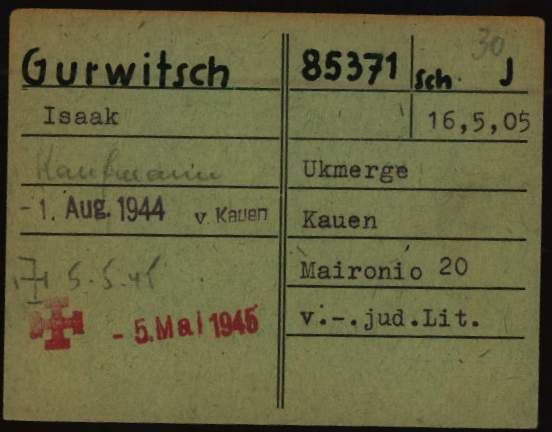 30
Gurwitsch 85371 Sch. J
Isaak 16,5,05
Kaufmann Ukmerge
-1. Aug. 1944 v. Kauen Kauen
5.5.45 Maironio 20
- 5. Mai 1945 v.-.jud.Lit.